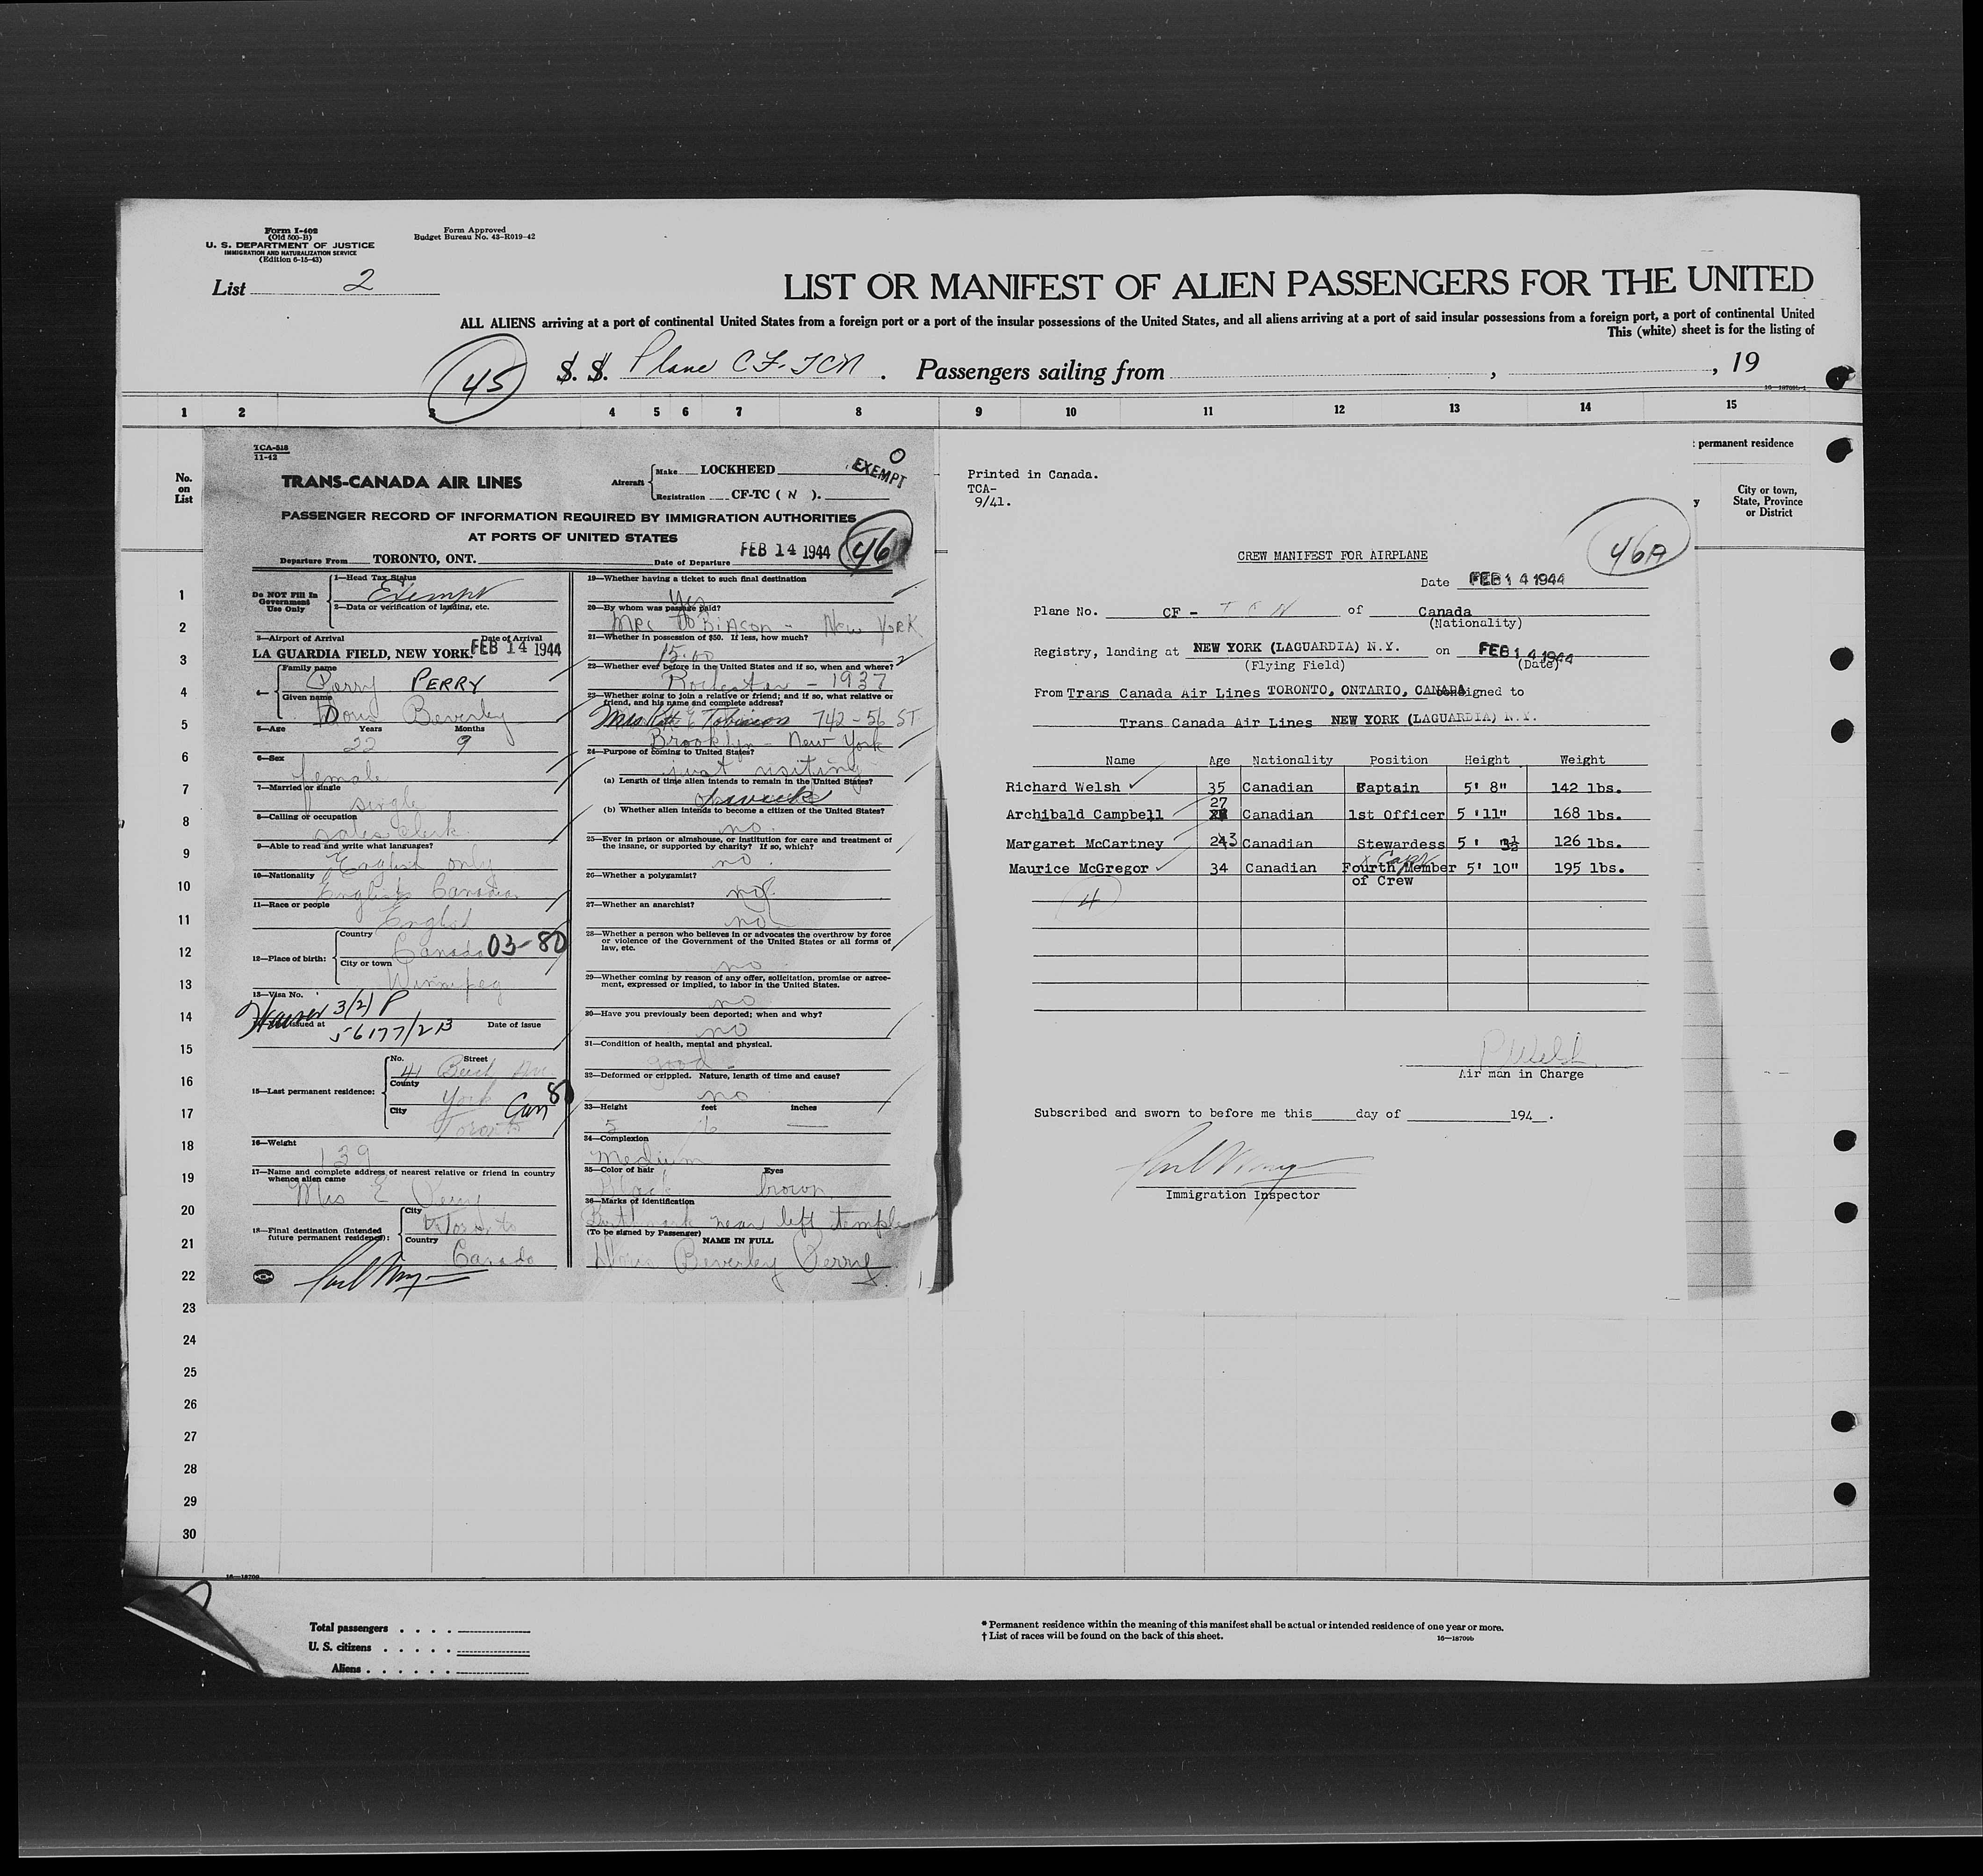 Form I-402
(Old 500-B)
U. S. DEPARTMENT OF JUSTICE
IMMIGRATION AND NATURALIZATION SERVICE
(Edition 6-15-43)
Form Approved
Budget Bureau No. 43-R019-42
List 2
LIST OR MANIFEST OF ALIEN PASSENGERS FOR THE UNITED
ALL ALIENS arriving at a port of continental United States from a foreign port or a port of the insular possessions of the United States, and all aliens arriving at a port of said insular possessions from a foreign port, a port of continental United
This (white) sheet is for the listing of
45 S. S. Plane CF-TCN . Passengers sailing from , , 19
16-18709b-1
1 2 3 4 5 6 7 8 9 10 11 12 13 14 15
No.
on
List
TCA-818
11-42
TRANS-CANADA AIR LINES
Aircraft
Make LOCKHEED
Registration CF-TC ( N ).
0
EXEMPT
PASSENGER RECORD OF INFORMATION REQUIRED BY IMMIGRATION AUTHORITIES
AT PORTS OF UNITED STATES
Departure From TORONTO, ONT.
Date of Departure FEB 14 1944
46
Do NOT Fill In
Government
Use Only
1—Head Tax Status
Exempt
2—Data or verification of landing, etc.
3—Airport of Arrival Date of Arrival
LA GUARDIA FIELD, NEW YORK. FEB 14 1944
4—
Family name
Perry PERRY
Given name
Doris Beverley
5—Age Years Months
22 9
6—Sex
female
7—Married or single
single
8—Calling or occupation
sales clerk
9—Able to read and write what languages?
English only
10—Nationality
English Canadian
11—Race or people
English
12—Place of birth:
Country
Canada 03-80
City or town
Winnipeg
13—Visa No.
Waiver 3(2) P
Issued at Date of issue
56177/2B
15—Last permanent residence:
No. Street
41 Beech Ave
County
York
City
Toronto
Can 80
16—Weight
139
17—Name and complete address of nearest relative or friend in country
whence alien came
Mrs E Perry
18—Final destination (Intended
future permanent residence):
City
Toronto
Country
Canada
19—Whether having a ticket to such final destination
Yes
20—By whom was passage paid?
Mrs Tobiacon - New York
21—Whether in possession of $50. If less, how much?
15.00
22—Whether ever before in the United States and if so, when and where?
Rochester - 1937
23—Whether going to join a relative or friend; and if so, what relative or
friend, and his name and complete address?
Mrs 742-56 ST
Brooklyn - New York
24—Purpose of coming to United States?
just visiting
(a) Length of time alien intends to remain in the United States?
week
(b) Whether alien intends to become a citizen of the United States?
no
25—Ever in prison or almshouse, or institution for care and treatment of
the insane, or supported by charity? If so, which?
no
26—Whether a polygamist?
no
27—Whether an anarchist?
no
28—Whether a person who believes in or advocates the overthrow by force
or violence of the Government of the United States or all forms of
law, etc.
no
29—Whether coming by reason of any offer, solicitation, promise or agree-
ment, expressed or implied, to labor in the United States.
no
30—Have you previously been deported; when and why?
no
31—Condition of health, mental and physical.
good
32—Deformed or crippled. Nature, length of time and cause?
no
33—Height feet inches
5 6
34—Complexion
Medium
35—Color of hair Eyes
Black brown
36—Marks of identification
Birthmark near left temple
(To be signed by Passenger) NAME IN FULL
Doris Beverley Perry
Printed in Canada.
TCA-
9/41.
46A
CREW MANIFEST FOR AIRPLANE
Date FEB 14 1944
Plane No. CF - TCN of Canada
(Nationality)
Registry, landing at NEW YORK (LAGUARDIA) N.Y. on FEB 14 1944
(Flying Field) (Date)
From Trans Canada Air Lines TORONTO, ONTARIO, CANADA consigned to
Trans Canada Air Lines NEW YORK (LAGUARDIA) N.Y.
Name Age Nationality Position Height Weight
Richard Welsh 35 Canadian Captain 5' 8" 142 lbs.
Archibald Campbell 27 Canadian 1st Officer 5 '11" 168 lbs.
Margaret McCartney 23 Canadian Stewardess 5 ' 3½ 126 lbs.
Maurice McGregor 34 Canadian Fourth Member 5' 10" 195 lbs.
x Capt
of Crew
4
R Welsh
Air man in Charge
Subscribed and sworn to before me this day of 194 .
Immigration Inspector
permanent residence
City or town,
State, Province
or District
1
2
3
4
5
6
7
8
9
10
11
12
13
14
15
16
17
18
19
20
21
22
23
24
25
26
27
28
29
30
16—18709
Total passengers . . . .
U. S. citizens . . . . .
Aliens . . . . . .
* Permanent residence within the meaning of this manifest shall be actual or intended residence of one year or more.
† List of races will be found on the back of this sheet.
16—18709b